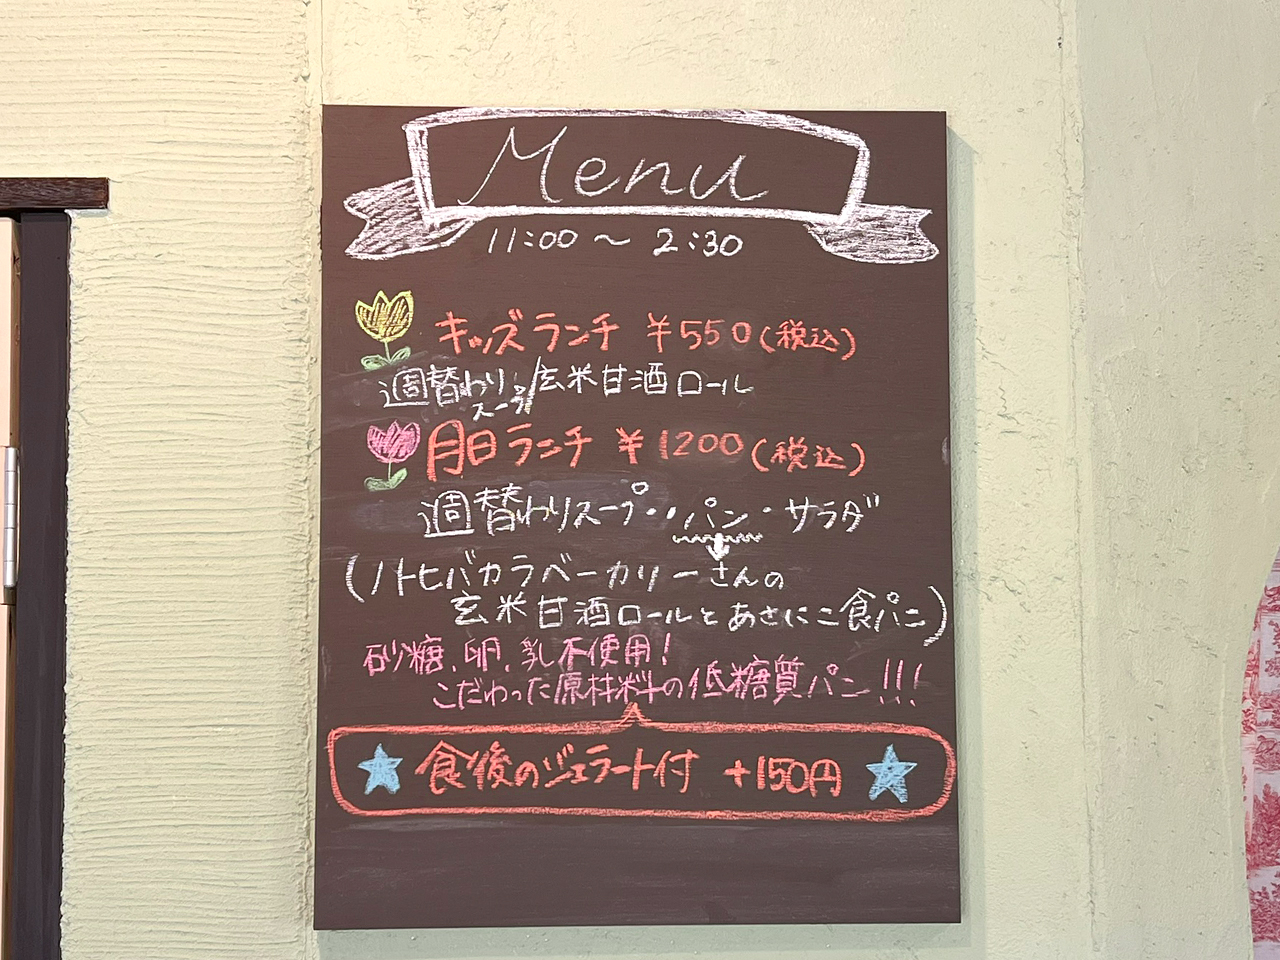 Menu
11:00 〜 2:30
キッズランチ ¥550(税込)
週替わりスープ/玄米甘酒ロール
月日ランチ ¥1200(税込)
週替わりスープ・パン・サラダ
(ノトヒバカラベーカリーさんの
玄米甘酒ロールとあさにこ食パン)
砂糖、卵、乳不使用!
こだわった原材料の低糖質パン!!!
食後のジェラート付 +150円